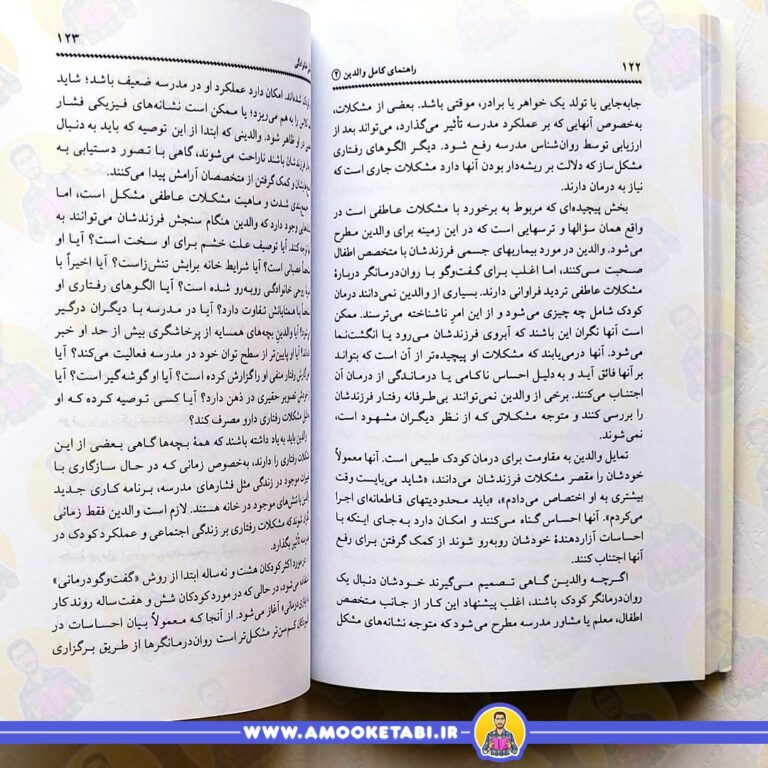 ۱۲۲
راهنمای کامل والدین (۲)
جابه‌جایی یا تولد یک خواهر یا برادر، موقتی باشد. بعضی از مشکلات،
به‌خصوص آنهایی که بر عملکرد مدرسه تأثیر می‌گذارد، می‌تواند بعد از
ارزیابی توسط روان‌شناس مدرسه رفع شود. دیگر الگوهای رفتاری
مشکل‌ساز که دلالت بر ریشه‌دار بودن آنها دارد مشکلات جاری است که
نیاز به درمان دارند.
بخش پیچیده‌ای که مربوط به برخورد با مشکلات عاطفی است در
واقع همان سؤالها و ترسهایی است که در این زمینه برای والدین مطرح
می‌شود. والدین در مورد بیماریهای جسمی فرزندشان با متخصص اطفال
صحبت می‌کنند، اما اغلب برای گفت‌وگو با روان‌درمانگر دربارهٔ
مشکلات عاطفی تردید فراوانی دارند. بسیاری از والدین نمی‌دانند درمان
کودک شامل چه چیزی می‌شود و از این امرِ ناشناخته می‌ترسند. ممکن
است آنها نگران این باشند که آبروی فرزندشان می‌رود یا انگشت‌نما
می‌شود. آنها درمی‌یابند که مشکلات او پیچیده‌تر از آن است که بتواند
بر آنها فائق آید و به دلیل احساس ناکامی یا درماندگی از درمان آن
اجتناب می‌کنند. برخی از والدین نمی‌توانند بی‌طرفانه رفتار فرزندشان
را بررسی کنند و متوجه مشکلاتی که از نظر دیگران مشهود است،
نمی‌شوند.
تمایل والدین به مقاومت برای درمان کودک طبیعی است. آنها معمولاً
خودشان را مقصر مشکلات فرزندشان می‌دانند، «شاید می‌بایست وقت
بیشتری به او اختصاص می‌دادم»، «باید محدودیتهای قاطعانه‌ای اجرا
می‌کردم». آنها احساس گناه می‌کنند و امکان دارد به جای اینکه با
احساسات آزاردهندهٔ خودشان روبه‌رو شوند از کمک گرفتن برای رفع
آنها اجتناب کنند.
اگرچه والدین گاهی تصمیم می‌گیرند خودشان دنبال یک
روان‌درمانگر کودک باشند، اغلب پیشنهاد این کار از جانب متخصص
اطفال، معلم یا مشاور مدرسه مطرح می‌شود که متوجه نشانه‌های مشکل
۱۲۳
شده‌اند. امکان دارد عملکرد او در مدرسه ضعیف باشد؛ شاید
کلاس را به هم می‌ریزد؛ یا ممکن است نشانه‌های فیزیکی فشار
در او ظاهر شود. والدینی که ابتدا از این توصیه که باید به دنبال
فرزندشان باشند ناراحت می‌شوند، گاهی با تصور دستیابی به
و کمک گرفتن از متخصصان آرامش پیدا می‌کنند.
شدت و ماهیت مشکلات عاطفی مشکل است، اما
وجود دارد که والدین هنگام سنجش فرزندشان می‌توانند به
توجه کنند. آیا توصیف علت خشم برای او سخت است؟ آیا او
عصبانی است؟ آیا شرایط خانه برایش تنش‌زاست؟ آیا اخیراً با
روحی خانوادگی روبه‌رو شده است؟ آیا الگوهای رفتاری او
با همتایانش تفاوت دارد؟ آیا در مدرسه با دیگران درگیر
آیا والدین بچه‌های همسایه از پرخاشگری بیش از حد او خبر
آیا او پایین‌تر از سطح توان خود در مدرسه فعالیت می‌کند؟ آیا
رفتار منفی او را گزارش کرده است؟ آیا او گوشه‌گیر است؟ آیا
تصویر حقیری در ذهن دارد؟ آیا کسی توصیه کرده که او
مشکلات رفتاری دارو مصرف کند؟
والدین باید به یاد داشته باشند که همهٔ بچه‌ها گاهی بعضی از این
مشکلات رفتاری را دارند، به‌خصوص زمانی که در حال سازگاری با
موجود در زندگی مثل فشارهای مدرسه، برنامه کاری جدید
موجود در خانه هستند. لازم است والدین فقط زمانی
شوند که مشکلات رفتاری بر زندگی اجتماعی و عملکرد کودک در
تأثیر بگذارد.
در مورد اکثر کودکان هشت و نه‌ساله ابتدا از روش «گفت‌وگو درمانی»
می‌شود، در حالی که در مورد کودکان شش و هفت‌ساله روند کار
آغاز می‌شود. از آنجا که معمولاً بیان احساسات در
کودکان کم‌سن‌تر مشکل‌تر است روان‌درمانگرها از طریق برگزاری
WWW.AMOOKETABI.IR